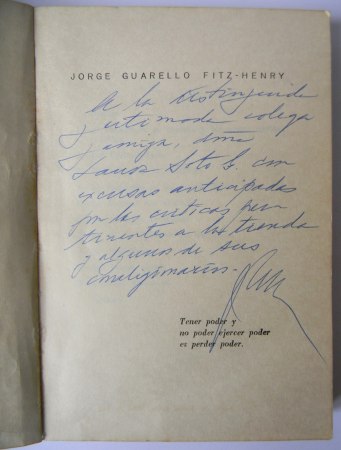 JORGE GUARELLO FITZ-HENRY
A la distinguida
y estimada colega
y amiga, doña
Laura Soto G. con
excusas anticipadas
por las críticas per
tinentes a la tienda
y algunos de sus
correligionarios.
Tener poder y
no poder ejercer poder
es perder poder.